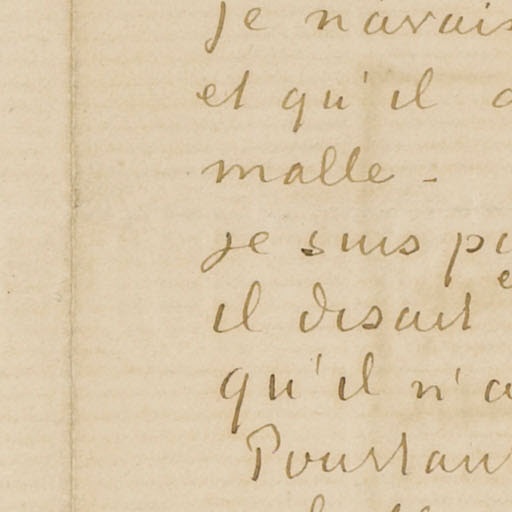 je n'avais
et qu'il
malle -
je suis
il disait
qu'il n'a
Pourtant